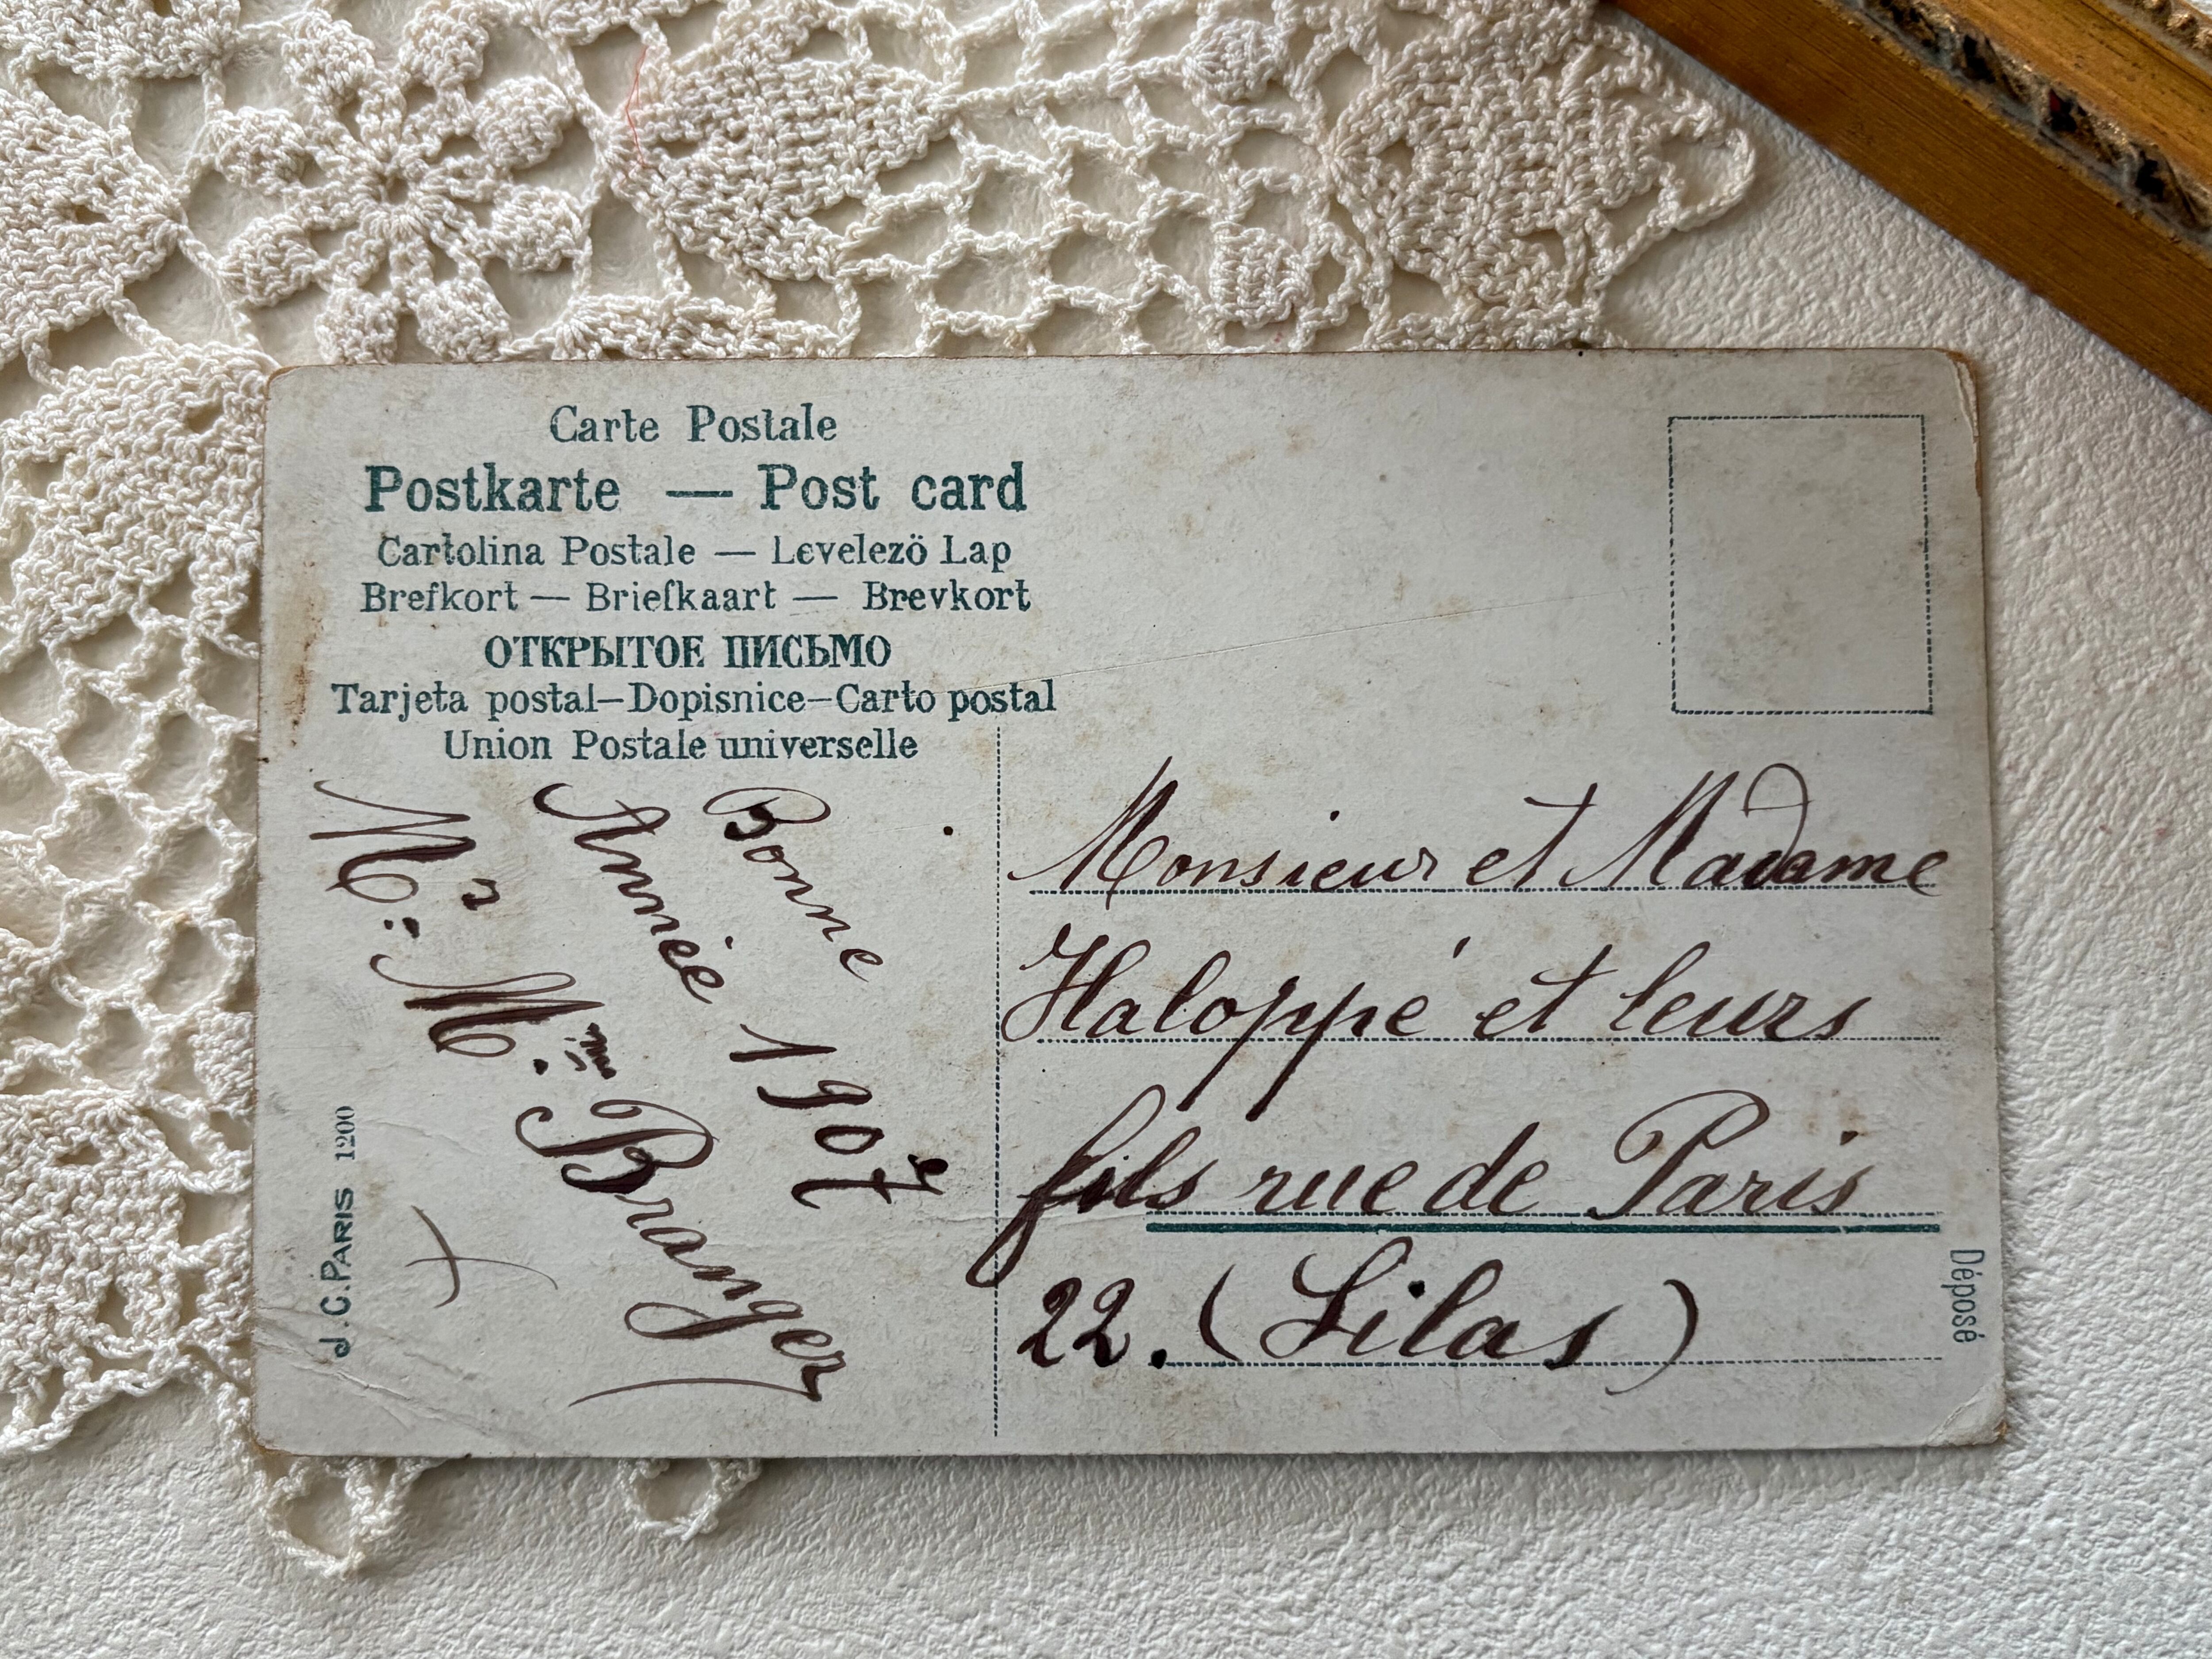 Carte Postale
Postkarte — Post card
Cartolina Postale — Levelezö Lap
Brefkort — Briefkaart — Brevkort
ОТКРЫТОЕ ПИСЬМО
Tarjeta postal–Dopisnice–Carto postal
Union Postale universelle
Bonne
Année 1907
Mr: M.me Branger
J.C. PARIS 1200
Monsieur et Madame
Haloppé et leurs
fils rue de Paris
22. (Lilas)
Déposé